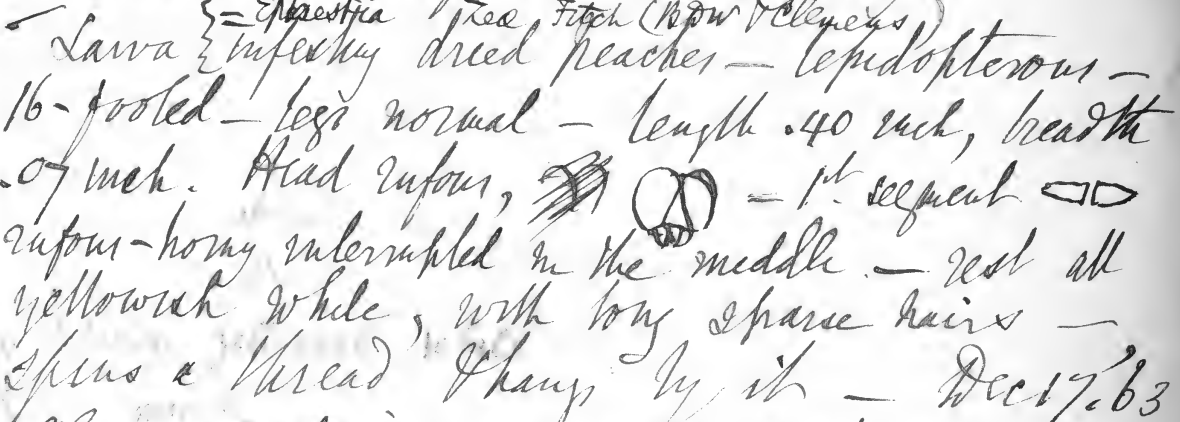 { = Ephestia Zeae Fitch (BDW & Clemens)
Larva { infesting dried peaches — lepidopterous —
16-footed — legs normal — length .40 inch, breadth
.07 inch. Head rufous, — 1st segment
rufous-horny interrupted in the middle — rest all
yellowish white, with long sparse hairs —
spins a thread & hangs by it — Dec 17, '63